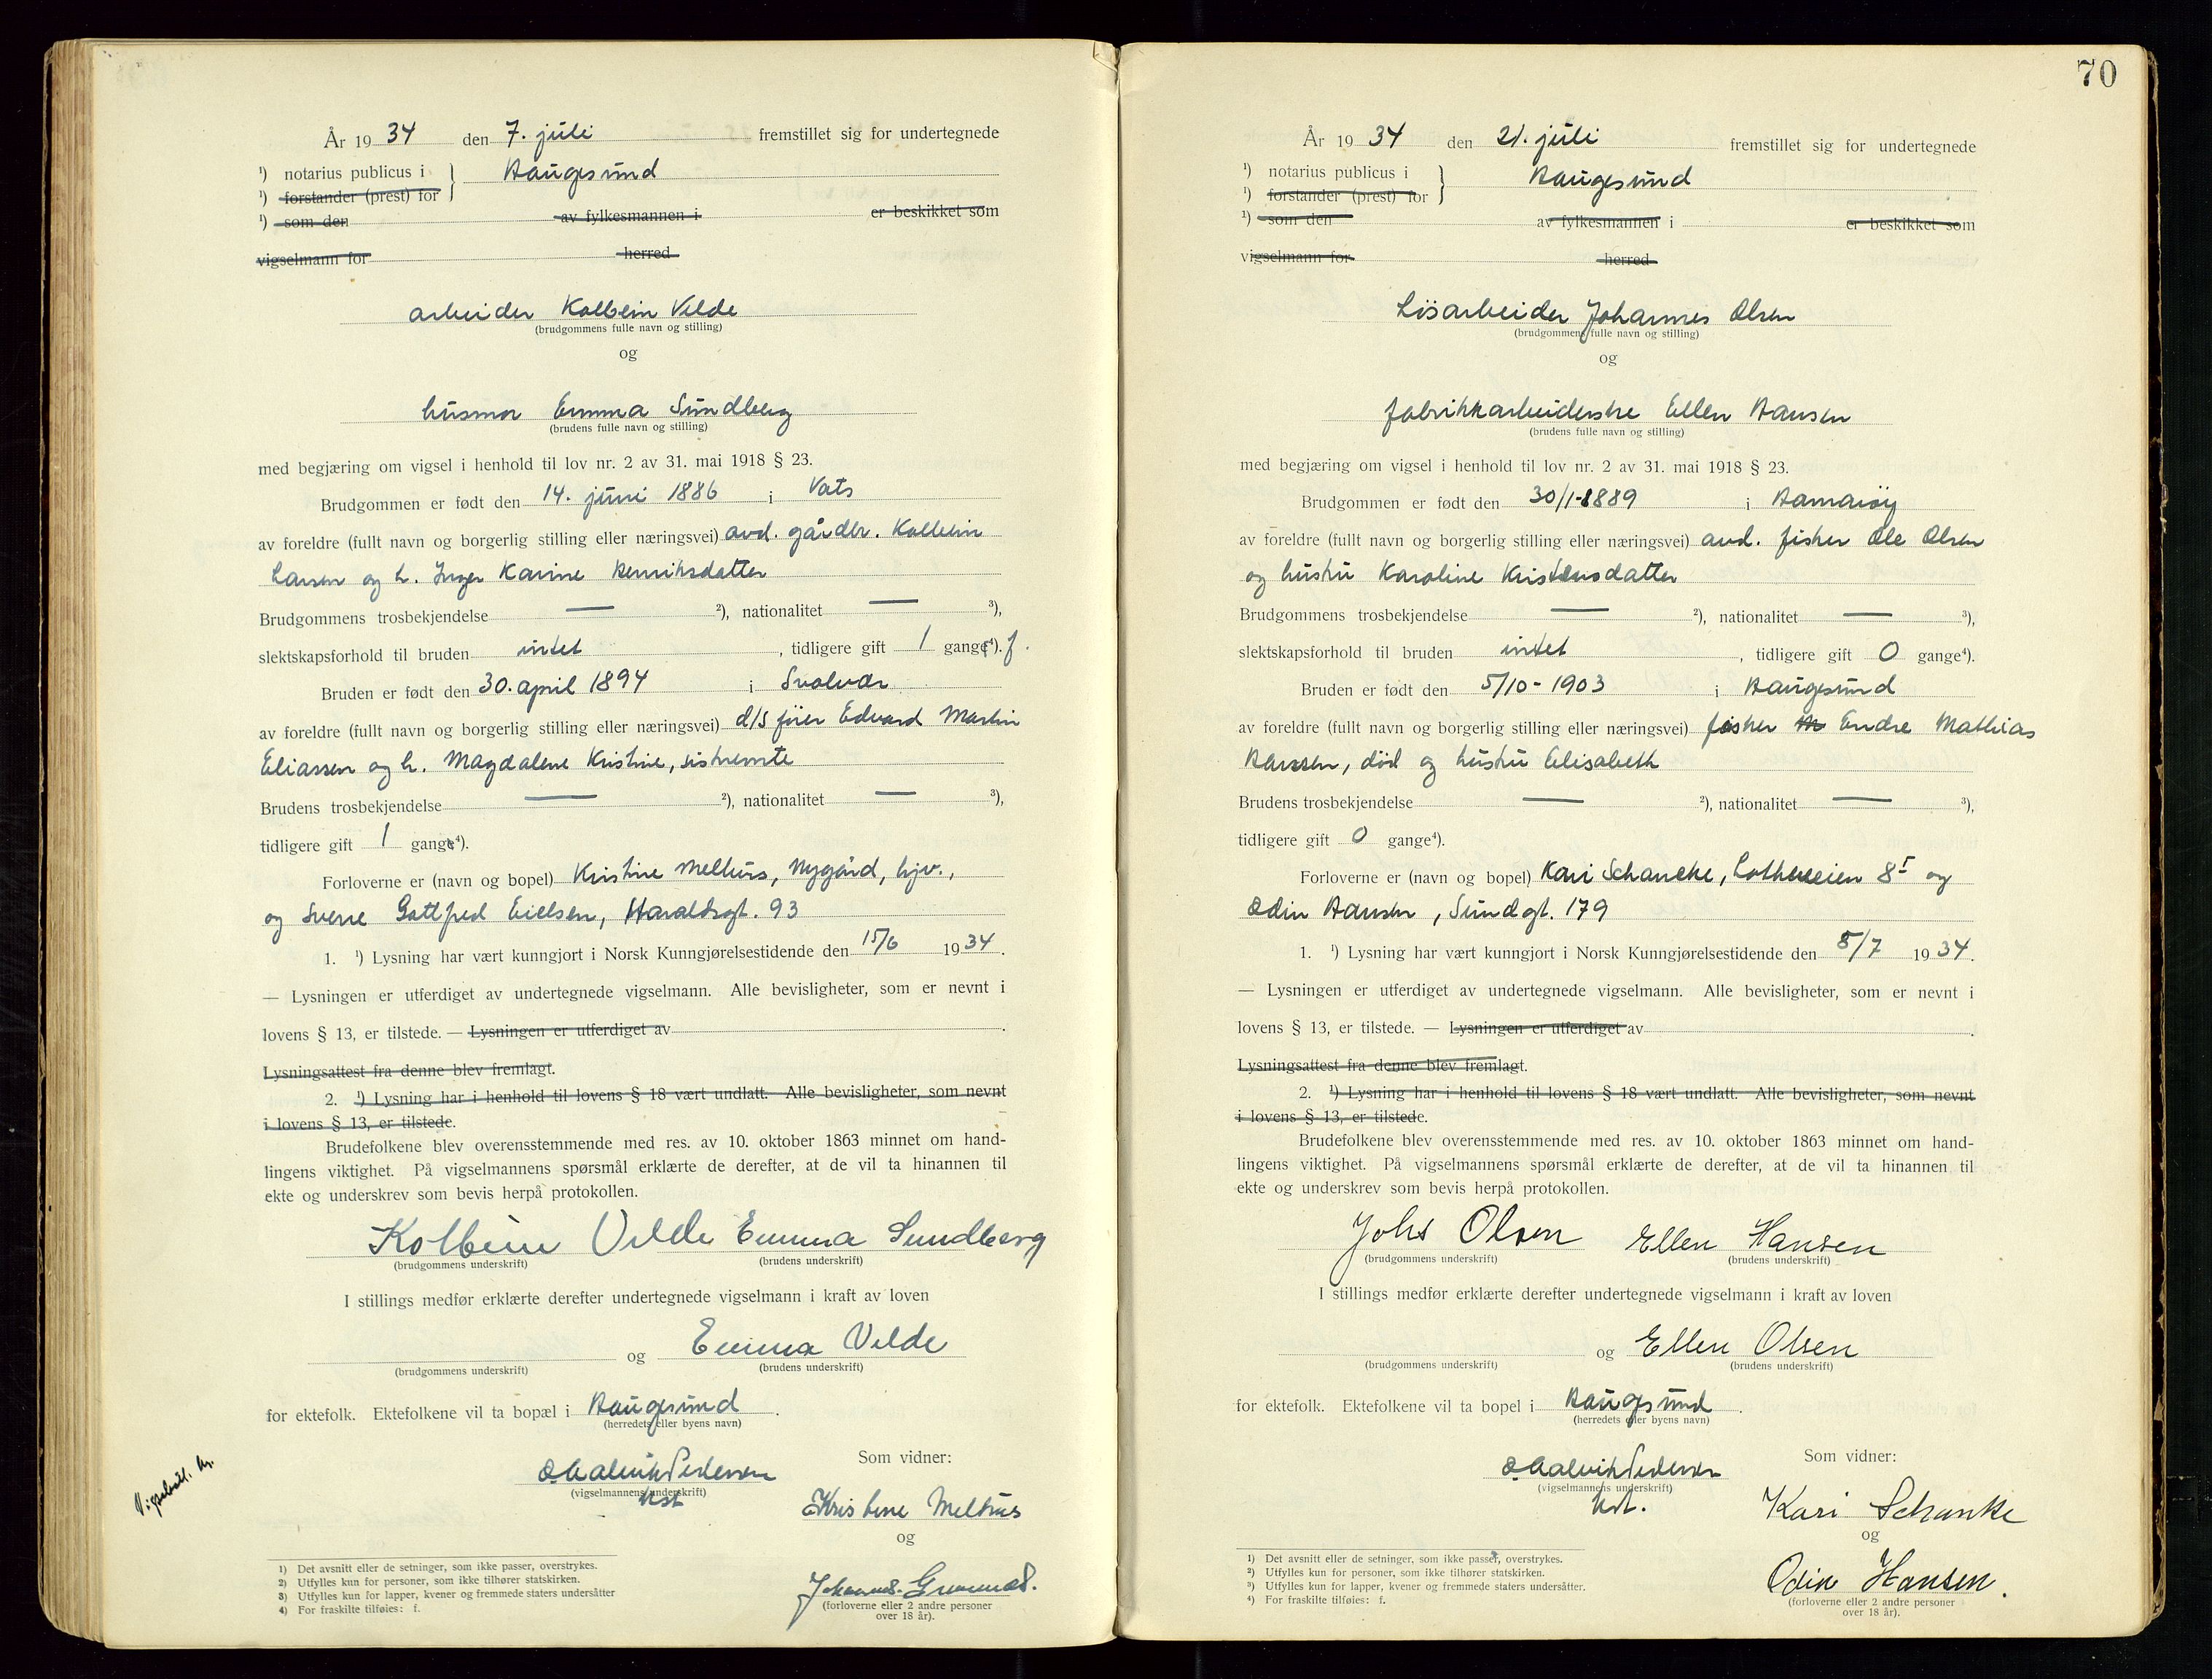 År 19 34 den 7. juli fremstillet sig for undertegnede
¹) notarius publicus i } Haugesund
¹) forstander (prest) for
¹) som den av fylkesmannen i er beskikket som
vigselmann for herred
arbeider Kolbein Velde
(brudgommens fulle navn og stilling)
og
husmor Emma Sundberg
(brudens fulle navn og stilling)
med begjæring om vigsel i henhold til lov nr. 2 av 31. mai 1918 § 23.
Brudgommen er født den 14. juni 1886 i Vats
av foreldre (fullt navn og borgerlig stilling eller næringsvei) avd. gårdbr. Kolbein
Larsen og h. Inger Karine Henriksdatter
Brudgommens trosbekjendelse — ²), nationalitet — ³),
slektskapsforhold til bruden intet , tidligere gift 1 gange⁴). f.
Bruden er født den 30. april 1894 i Svolvær
av foreldre (fullt navn og borgerlig stilling eller næringsvei) d/s fører Edvard Martin
Eliassen og h. Magdalene Kristine, sistnevnte
Brudens trosbekjendelse — ²), nationalitet — ³),
tidligere gift 1 gange⁴).
Forloverne er (navn og bopel) Kristine Melhus, Nygård, hjv.,
og Sverre Gottfred Eielsen, Haraldsgt. 93
1. ¹) Lysning har vært kunngjort i Norsk Kunngjørelsestidende den 15/6 19 34.
— Lysningen er utferdiget av undertegnede vigselmann. Alle bevisligheter, som er nevnt i
lovens § 13, er tilstede. — Lysningen er utferdiget av .
Lysningsattest fra denne blev fremlagt.
2. ¹) Lysning har i henhold til lovens § 18 vært undlatt. Alle bevisligheter, som nevnt
i lovens § 13, er tilstede.
Brudefolkene blev overensstemmende med res. av 10. oktober 1863 minnet om hand-
lingens viktighet. På vigselmannens spørsmål erklærte de derefter, at de vil ta hinannen til
ekte og underskrev som bevis herpå protokollen.
Kolbein Velde Emma Sundberg
(brudgommens underskrift) (brudens underskrift)
I stillings medfør erklærte derefter undertegnede vigselmann i kraft av loven
og Emma Velde
(brudgommens underskrift) (brudens underskrift)
for ektefolk. Ektefolkene vil ta bopæl i Haugesund .
(herredets eller byens navn)
Som vidner:
Pedersen
(vigselmannens underskrift)
kst
Kristine Melhus
og
(forloverne eller 2 andre personer
over 18 år).
1) Det avsnitt eller de setninger, som ikke passer, overstrykes.
2) Utfylles kun for personer, som ikke tilhører statskirken.
3) Utfylles kun for lapper, kvener og fremmede staters undersåtter
4) For fraskilte tilføies: f.
70
År 19 34 den 21. juli fremstillet sig for undertegnede
¹) notarius publicus i } Haugesund
¹) forstander (prest) for
¹) som den av fylkesmannen i er beskikket som
vigselmann for herred
Løsarbeider Johannes Olsen
(brudgommens fulle navn og stilling)
og
fabrikkarbeiderske Ellen Hansen
(brudens fulle navn og stilling)
med begjæring om vigsel i henhold til lov nr. 2 av 31. mai 1918 § 23.
Brudgommen er født den 30/1-1889 i Hamarøy
av foreldre (fullt navn og borgerlig stilling eller næringsvei) avd. fisker Ole Olsen
og hustru Karoline Kristensdatter
Brudgommens trosbekjendelse — ²), nationalitet — ³),
slektskapsforhold til bruden intet , tidligere gift 0 gange⁴).
Bruden er født den 5/10-1903 i Haugesund
av foreldre (fullt navn og borgerlig stilling eller næringsvei) fisker M Endre Mathias
Hansen, død og hustru Elisabeth
Brudens trosbekjendelse — ²), nationalitet — ³),
tidligere gift 0 gange⁴).
Forloverne er (navn og bopel) Kari Schancke, Lotheveien 8ᴵ og
Odin Hansen, Sundgt. 179
1. ¹) Lysning har vært kunngjort i Norsk Kunngjørelsestidende den 5/7 19 34.
— Lysningen er utferdiget av undertegnede vigselmann. Alle bevisligheter, som er nevnt i
lovens § 13, er tilstede. — Lysningen er utferdiget av .
Lysningsattest fra denne blev fremlagt.
2. ¹) Lysning har i henhold til lovens § 18 vært undlatt. Alle bevisligheter, som nevnt
i lovens § 13, er tilstede.
Brudefolkene blev overensstemmende med res. av 10. oktober 1863 minnet om hand-
lingens viktighet. På vigselmannens spørsmål erklærte de derefter, at de vil ta hinannen til
ekte og underskrev som bevis herpå protokollen.
Johs Olsen Ellen Hansen
(brudgommens underskrift) (brudens underskrift)
I stillings medfør erklærte derefter undertegnede vigselmann i kraft av loven
og Ellen Olsen
(brudgommens underskrift) (brudens underskrift)
for ektefolk. Ektefolkene vil ta bopel i Haugesund .
(herredets eller byens navn)
Som vidner:
Pedersen
(vigselmannens underskrift)
kst.
Kari Schanke
og
Odin Hansen.
(forloverne eller 2 andre personer
over 18 år).
¹) Det avsnitt eller de setninger, som ikke passer, overstrykes.
²) Utfylles kun for personer, som ikke tilhører statskirken.
³) Utfylles kun for lapper, kvener og fremmede staters undersåtter.
⁴) For fraskilte tilføies: f.